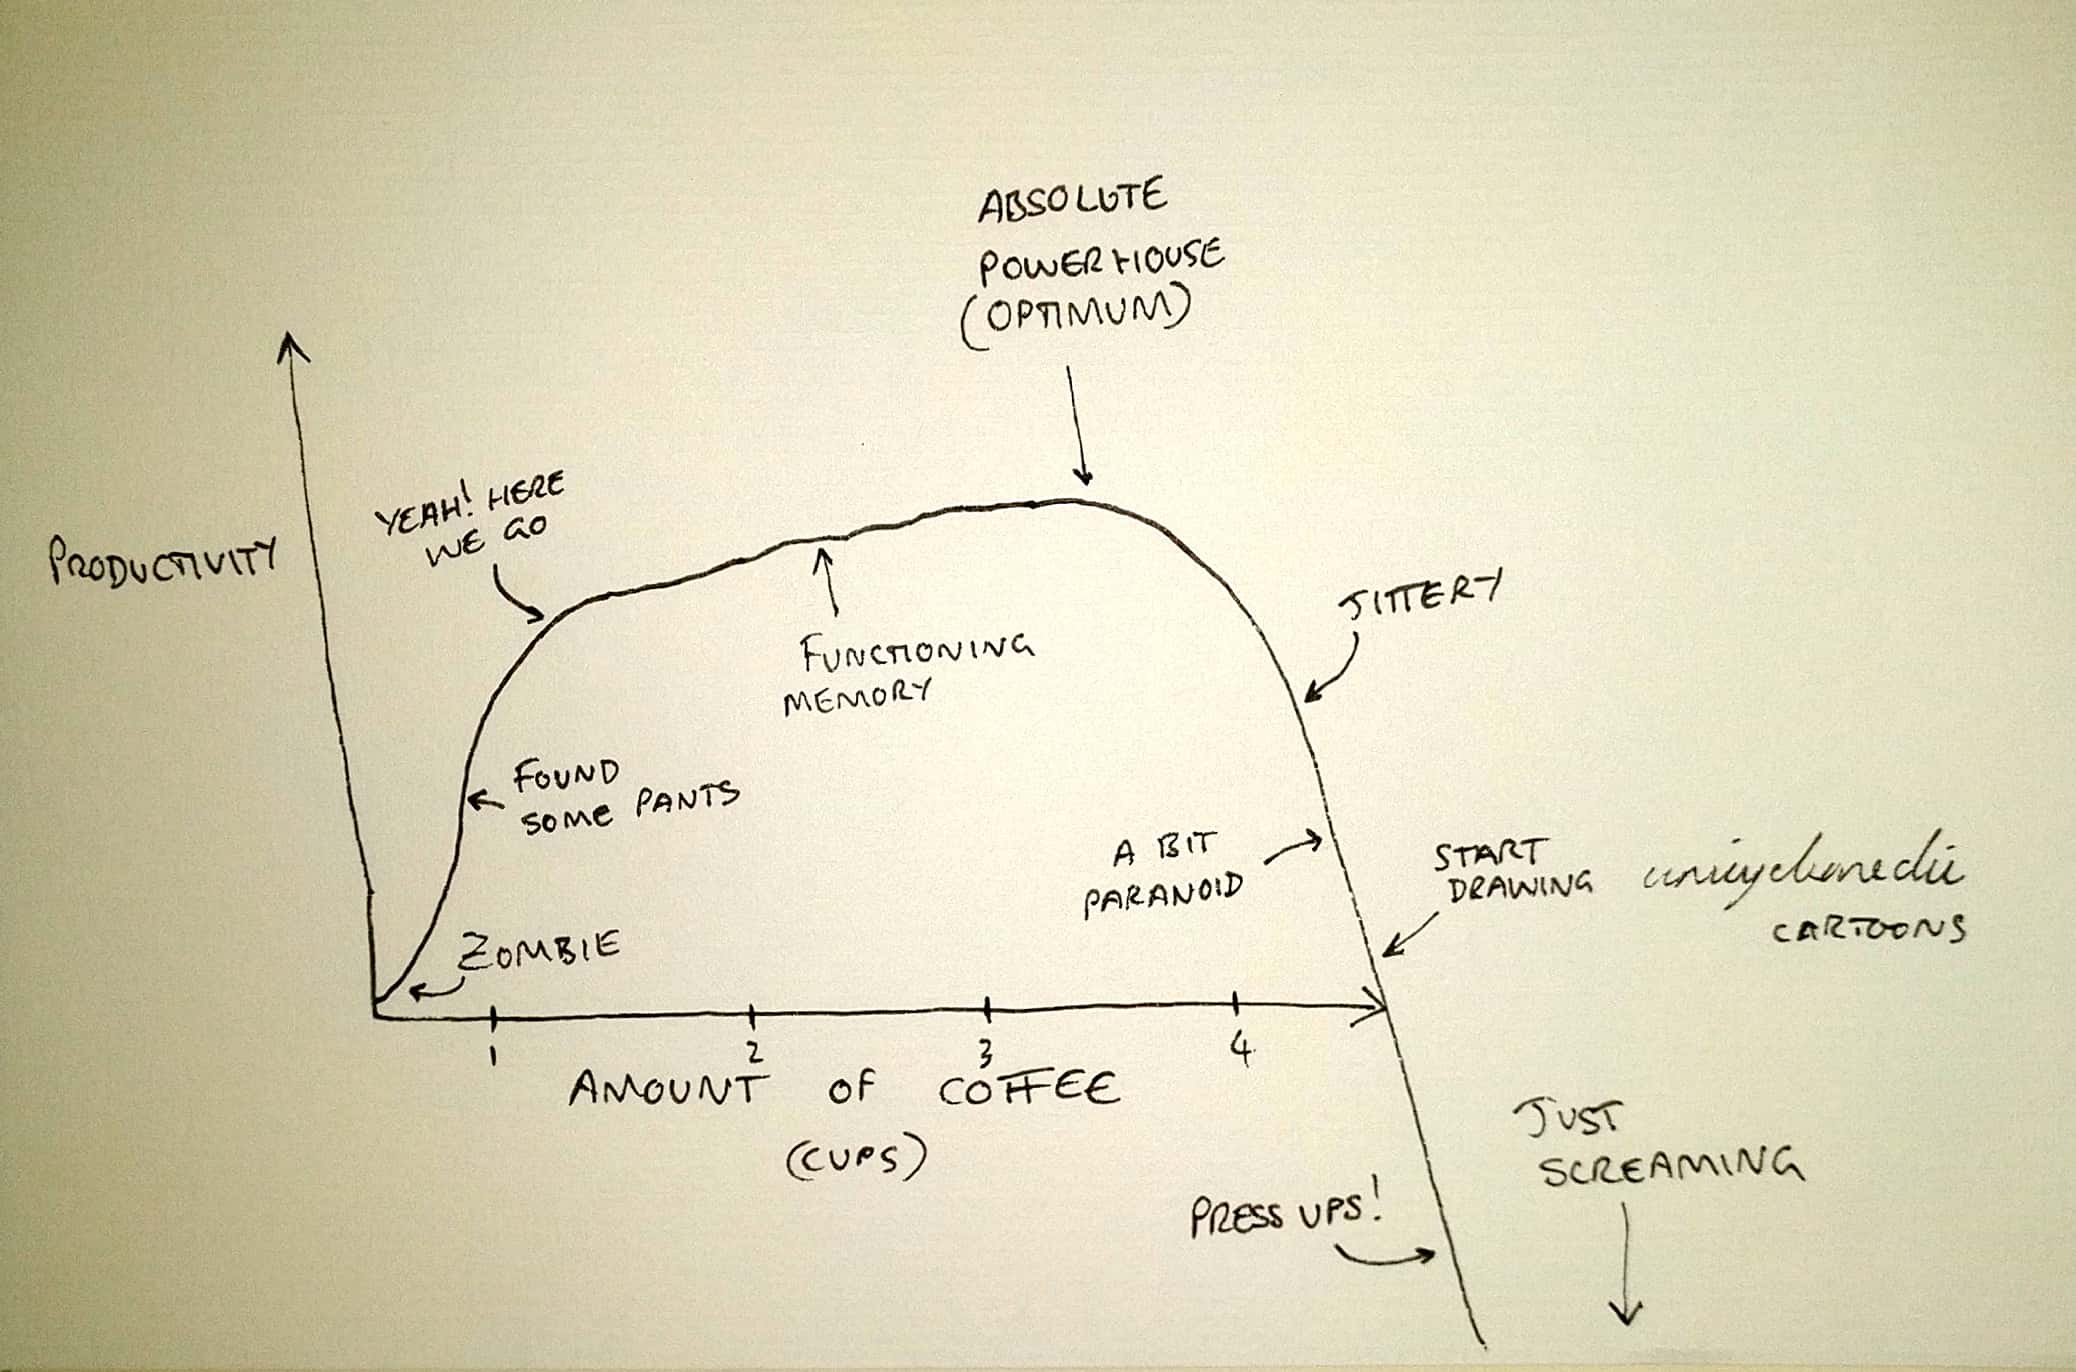 ABSOLUTE
POWERHOUSE
(OPTIMUM)
YEAH! HERE
WE GO
PRODUCTIVITY
JITTERY
FUNCTIONING
MEMORY
FOUND
SOME PANTS
A BIT
PARANOID
START
DRAWING
CARTOONS
ZOMBIE
1 2 3 4
AMOUNT OF COFFEE
(CUPS)
JUST
SCREAMING
PRESS UPS!